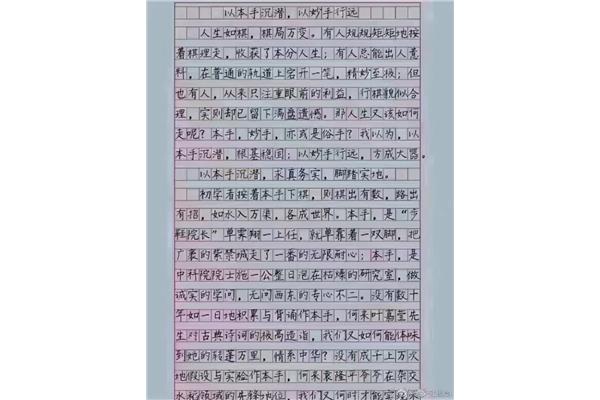 以本手沉潜，以妙手行远
人生如棋，棋局万变。有人规规矩矩地按
着棋理走，收获了本分人生；有人总能出人意
料，在普通的轨道上宕开一笔，精妙至极；但
也有人，从来只注重眼前的利益，行棋貌似合
理，实则却已留下满盘遗憾。那人生又该如何
走呢？本手，妙手，亦或是俗手？我以为，以
本手沉潜，根基稳固；以妙手行远，方成大器。
以本手沉潜，求真务实，脚踏实地。
初学者按着本手下棋，则棋出有数，路出
有招，如水入万渠，各成世界。本手，是“步
鞋院长”单霁翔一上任，就单靠着一双脚，把
广袤的紫禁城走了一番的无限耐心；本手，是
中科院院士施一公整日泡在枯燥的研究室，做
诚实的学问，无问西东的专心不二。没有数十
年如一日地积累与背诵作本手，何来叶嘉莹先
生对古典诗词的极高造诣，我们又如何能体味
到她的转蓬万里，情系中华？没有成千上万次
地假设与实验作本手，何来袁隆平爷爷在杂交
水稻领域的先锋地位，我们又何时才能实现禾